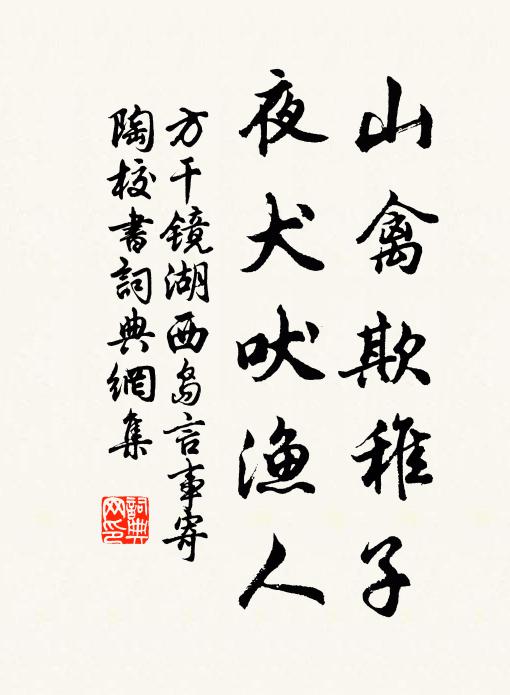 山禽欺稚子
夜犬吠渔人
方干鏡湖西島言事寄
陶校書詞典網集
詞典
网印